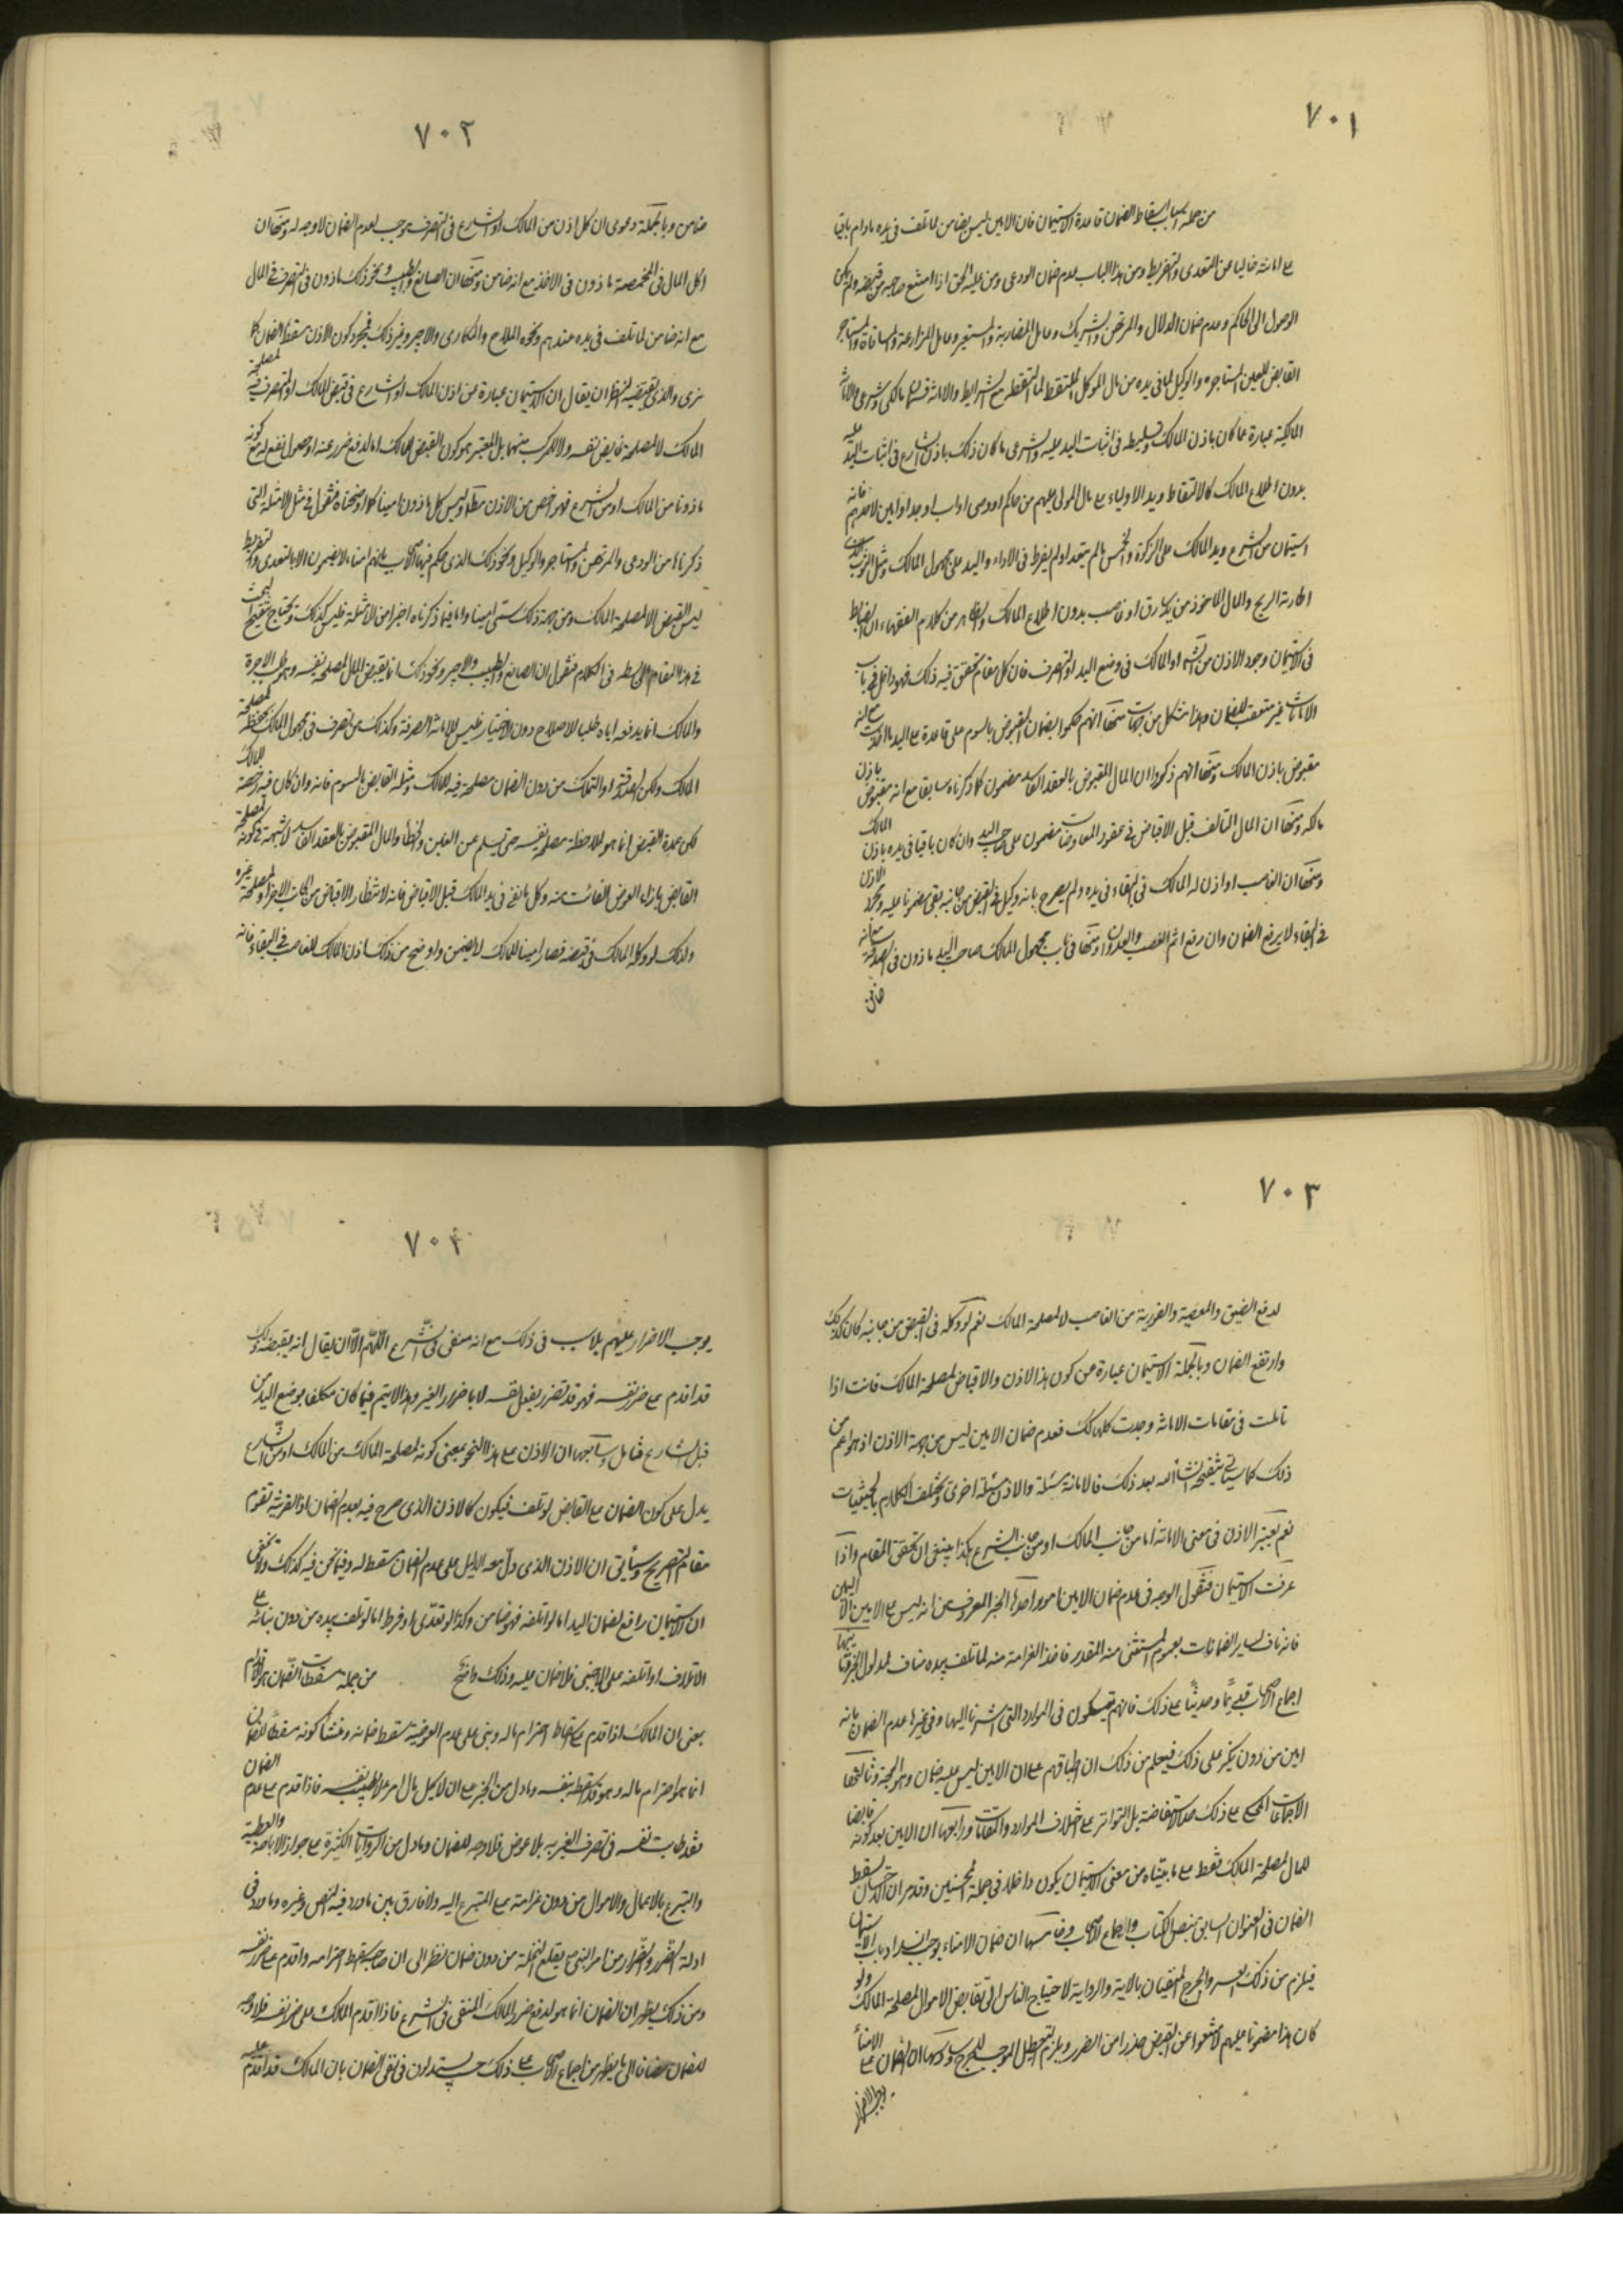 ٧٠١
من جملة اسباب اسقاط الضمان قاعدة الاستيمان فان الامين ليس بضامن لما تلف في يده مادام باقيا
على امانته خاليا عن التعدي والتفريط ومن هذا الباب عدم ضمان الودعي ومن عليه الحق اذا امتنع صاحبه من قبضه ولم يمكن
الوصول الى الحاكم وعدم ضمان الدلال والمرتهن والشريك وعامل المضاربة والمستعير وعامل المزارعة والمساقاة والمستاجر
القابض للعين المستاجرة والوكيل لما في يده من مال الموكل والملتقط لما التقطه مع الشرايط والامانة قسمان مالكي وشرعي والامانة
المالكية عبارة عما كان باذن المالك وتسليطه في اثبات اليد عليه والشرعي ما كان ذلك باذن الشارع في اثبات اليد عليه
بدون اطلاع المالك كالالتقاط ويد الاولياء على مال المولى عليهم من حاكم او وصي او اب او جد او امين لاحدهم فانه
استيمان من الشرع ويد المالك على الزكوة والخمس ما لم يتعد او لم يفرط في الاداء واليد على مجهول المالك ومثل الثوب الذي
اطارته الريح والمال الماخوذ من يد سارق او غاصب بدون اطلاع المالك والظاهر من كلام الفقهاء ان الضابط
في الاستيمان وجود الاذن من الشرع او المالك في وضع اليد او التصرف فان كل مقام تحقق فيه ذلك فهو داخل في باب
الامانات غير متعقب للضمان وهذا مشكل من جهات منها انهم حكموا بضمان المقبوض بالسوم على قاعدة على اليد ما اخذت مع انه
مقبوض باذن المالك ومنها انهم ذكروا ان المال المقبوض بالعقد الفاسد مضمون كما ذكرناه سابقا مع انه مقبوض باذن
مالكه ومنها ان المال التالف قبل الاقباض في عقود المعاوضات مضمون على صاحب اليد وان كان باقيا في يده باذن المالك
ومنها ان الغاصب لو اذن له المالك في البقاء في يده ولم يصرح بانه وكيل في القبض من جانبه يبقى مضمونا عليه ومجرد الاذن
في البقاء لا يرفع الضمان وان رفع اثم الغصب والعدوان ومنها في باب مجهول المالك صاحب اليد ماذون في الصدقة مع انه
ضامن
٧٠٢
ضامن وبالجملة دعوى ان كل اذن من المالك او الشارع في التصرف موجب لعدم الضمان لا وجه له ومنها ان
اكل المال في المخمصة ماذون في الاخذ مع انه ضامن ومنها ان الصانع والطبيب ونحو ذلك ماذون في التصرف في المال
مع انه ضامن لما تلف في يده عندهم ونحوه الملاح والمكاري والاجير وغير ذلك فمجرد كون الاذن مسقطا للضمان كما
ترى والذي يقتضيه النظر ان يقال ان الاستيمان عبارة عن اذن المالك او الشارع في قبض المالك او التصرف فيه لمصلحة
المالك لا لمصلحة قابض نفسه ولا المركب منهما بل المعتبر هو كون القبض للمالك اما لدفع ضرر عنه او حصول نفع له مع كونه
ماذونا من المالك او من الشرع فهو اخص من الاذن مطلقا وليس كل ماذون امينا كما اوضحناه فنقول في مثل الامثلة التي
ذكرناها من الودعي والمرتهن والمستاجر والوكيل ونحو ذلك الذي حكم فيها الاصحاب بانهم امناء لا يضمنون الا بالتعدي والتفريط
ليس القبض الا لمصلحة المالك ومن جهة ذلك سمي امينا واما فيما ذكرناه اخيرا من الامثلة فليس كذلك ويحتاج تنقيح البحث
في هذا المقام الى بسط في الكلام فنقول ان الصانع والطبيب والاجير ونحو ذلك انما يقبض المال لمصلحة نفسه وهو طلب الاجرة
والمالك انما يدفعه اياه طلبا للاصلاح دون الاختيار فليس للامانة الصرفة وكذلك من تصرف في مجهول المالك بحفظه لمصلحة
المالك ولكن الصدقة او التملك من دون الضمان مصلحة فيه للمالك ومثله القابض بالسوم فانه وان كان فيه جهة للمالك
لكن عمدة القبض انما هو لملاحظة مصلحة نفسه حتى يسلم عن الغبن والخطأ والمال المقبوض بالعقد الفاسد لا شبهة في كونه لمصلحة
القابض بازاء العوض الفائت منه وكل بايع في يد المالك قبل الاقباض فانه لانتظار الاقباض من الجانب الاخر او لمصلحة غيره
ولذلك لو وكله المالك في قبضه فصار امينا للمالك لا يضمن واوضح من ذلك اذن المالك للغاصب في البقاء فانه
٧٠٣
لدفع الضيق والمعصية والفورية من الغاصب لا لمصلحة المالك نعم لو وكله في القبض من جانبه كان كذلك
وارتفع الضمان وبالجملة الاستيمان عبارة عن كون هذا الاذن والاقباض لمصلحة المالك فانت اذا
تاملت في مقامات الامانة وجدت كلها كذلك فعدم ضمان الامين ليس من جهة الاذن اذ هو اعم من
ذلك كما سياتي تنقيحه انشاء الله بعد ذلك فالامانة مسئلة والاذن مسئلة اخرى ويختلف الكلام بالحيثيات
نعم يعتبر الاذن في معنى الامانة اما من جانب المالك او من جانب الشرع هكذا ينبغي ان تحقق المقام واذا
عرفت الاستيمان فنقول الوجه في عدم ضمان الامين امور احدها الخبر المعروف من انه ليس على الامين الا اليمين
فانه ناف لساير الضمانات بعموم المستثنى منه المقدر فاخذ الغرامة منه لما تلف بيده مناف لمدلول الخبر وثانيها
اجماع الاصحاب قديما وحديثا على ذلك فانهم يتمسكون في الموارد التي اشرنا اليها وفي غيرها لعدم الضمان بانه
امين من دون نكير على ذلك فيعلم من ذلك ان اطباقهم على ان الامين ليس عليه ضمان وهو الحجة وثالثها
الاجماعات المحكية على ذلك حد الاستفاضة بل التواتر على اختلاف الموارد والمقامات ورابعها ان الامين بعد كونه قابضا
للمال لمصلحة المالك فقط على ما بيناه من معنى الاستيمان يكون داخلا في جملة المحسنين وقد مر ان الاحسان مسقط
الضمان في العنوان السابق بنص الكتاب واجماع الاصحاب وخامسها ان ضمان الامناء يوجب انسداد باب الاستيمان
فيلزم من ذلك العسر والحرج المنفيان بالاية والرواية لاحتياج الناس الى تقابض الاموال لمصلحة المالك ولو
كان هذا مضمونا عليهم لامتنعوا عن القبض حذرا من الضرر ويلزم التعطيل الموجب للحرج وسادسها ان الضمان على الامناء
يوجب الاضرار
٧٠٤
يوجب الاضرار عليهم بلا سبب في ذلك مع انه منفي في الشرع اللهم الا ان يقال انه بقبضه ذلك
قد اقدم على ضرر نفسه فهو قد تضرر بفعل نفسه لا باضرار الغير وهذا لا يتم فيما كان مكلفا بوضع اليد من
قبل الشارع فتامل وسابعها ان الاذن على هذا النحو بمعنى كونه لمصلحة المالك من المالك او من الشارع
يدل على كون الضمان على القابض لو تلف فيكون كالاذن الذي صرح فيه بعدم الضمان اذ القرينة تقوم
مقام التصريح وسيأتي ان الاذن الذي دل معه الدليل على عدم الضمان مسقط له وفيما نحن فيه كذلك ولا يخفى
ان الاستيمان رافع لضمان اليد اما لو اتلفه فهو ضامن وكذا لو تعدى او فرط اما لو تلف بيده من دون بنائه على
الاتلاف او اتلفه على الاجنبي فلا ضمان عليه وذلك واضح من جملة مسقطات الضمان هو الاقدام
بمعنى ان المالك اذا اقدم على اسقاط احترام ماله وبنى على عدم العوضية سقط ضمانه ومنشأ كونه مسقطا للضمان ان الضمان
انما هو احترام ماله وهو قد اسقطه بنفسه وما دل من الخبر على ان لا يحل مال امرء الا بطيب نفسه فاذا اقدم على عدم
فقد طابت نفسه في تصرف الغير به بلا عوض فلا وجه للضمان وما دل من الروايات الكثيرة على جواز الاباحة والعطية
والتبرع بالاعمال والاموال من دون غرامة على المتبرع اليه ولا فارق بين ما ورد فيه النص وغيره وما ورد في
ادلة الضرر والضرار من امر النبي بقلع النخلة من دون ضمان نظرا الى ان صاحبه اسقط احترامه واقدم على ضرر نفسه
ومن ذلك يظهر ان الضمان انما هو لدفع ضرر المالك المنفي في الشرع فاذا اقدم المالك على ضرر نفسه فلا وجه
للضمان مضافا الى ما يظهر من اجماع الاصحاب على ذلك حيث يستدلون في نفي الضمان بان المالك قد اقدم عليه